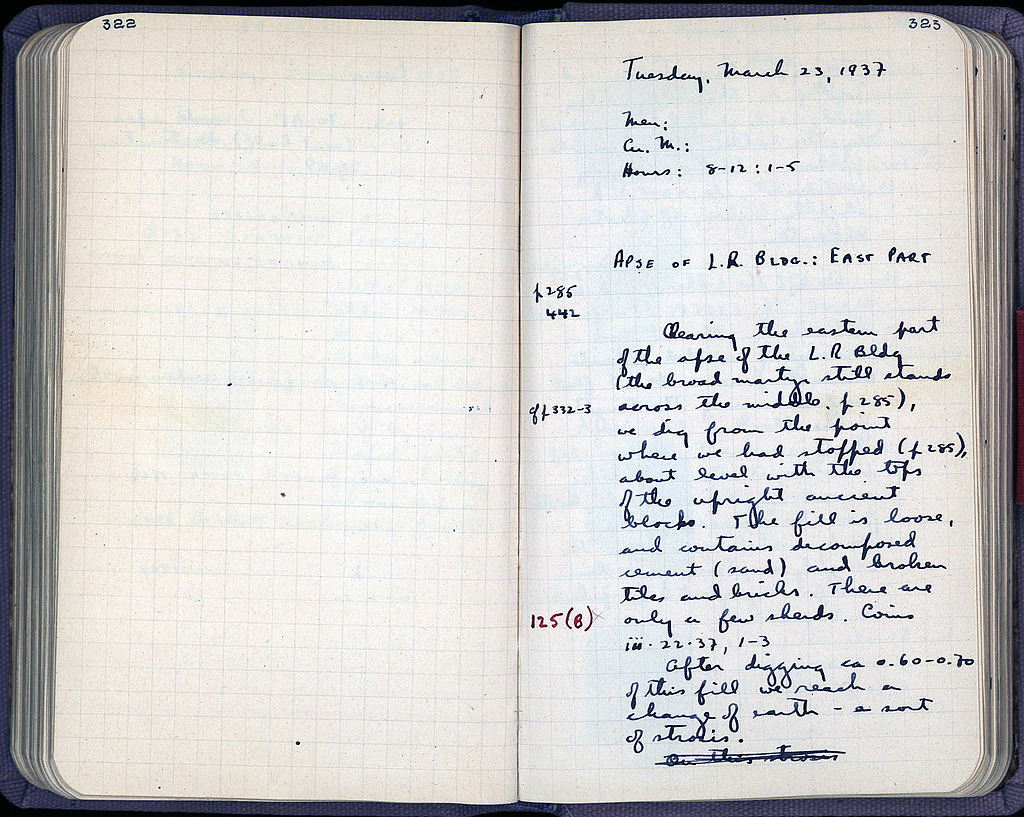 322
323
Tuesday, March 23, 1937
Men:
Cu. M.:
Hours: 8-12: 1-5
APSE OF L.R. BLDG.: EAST PART
p 285
442
Clearing the eastern part
of the apse of the L.R Bldg
(the broad martyr still stands
cf p 332-3
across the middle. p 285),
we dig from the point
where we had stopped (p 285),
about level with the tops
of the upright ancient
blocks. The fill is loose,
and contains decomposed
cement (sand) and broken
tiles and bricks. There are
125(B)
only a few sherds. Coins
iii·22·37, 1-3
After digging ca 0.60-0.70
of this fill we reach a
change of earth - a sort
of strosis.
On this strosis